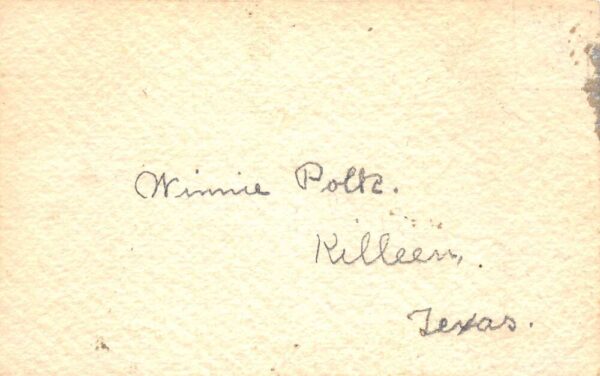 Winnie Polk.
Killeen,
Texas.